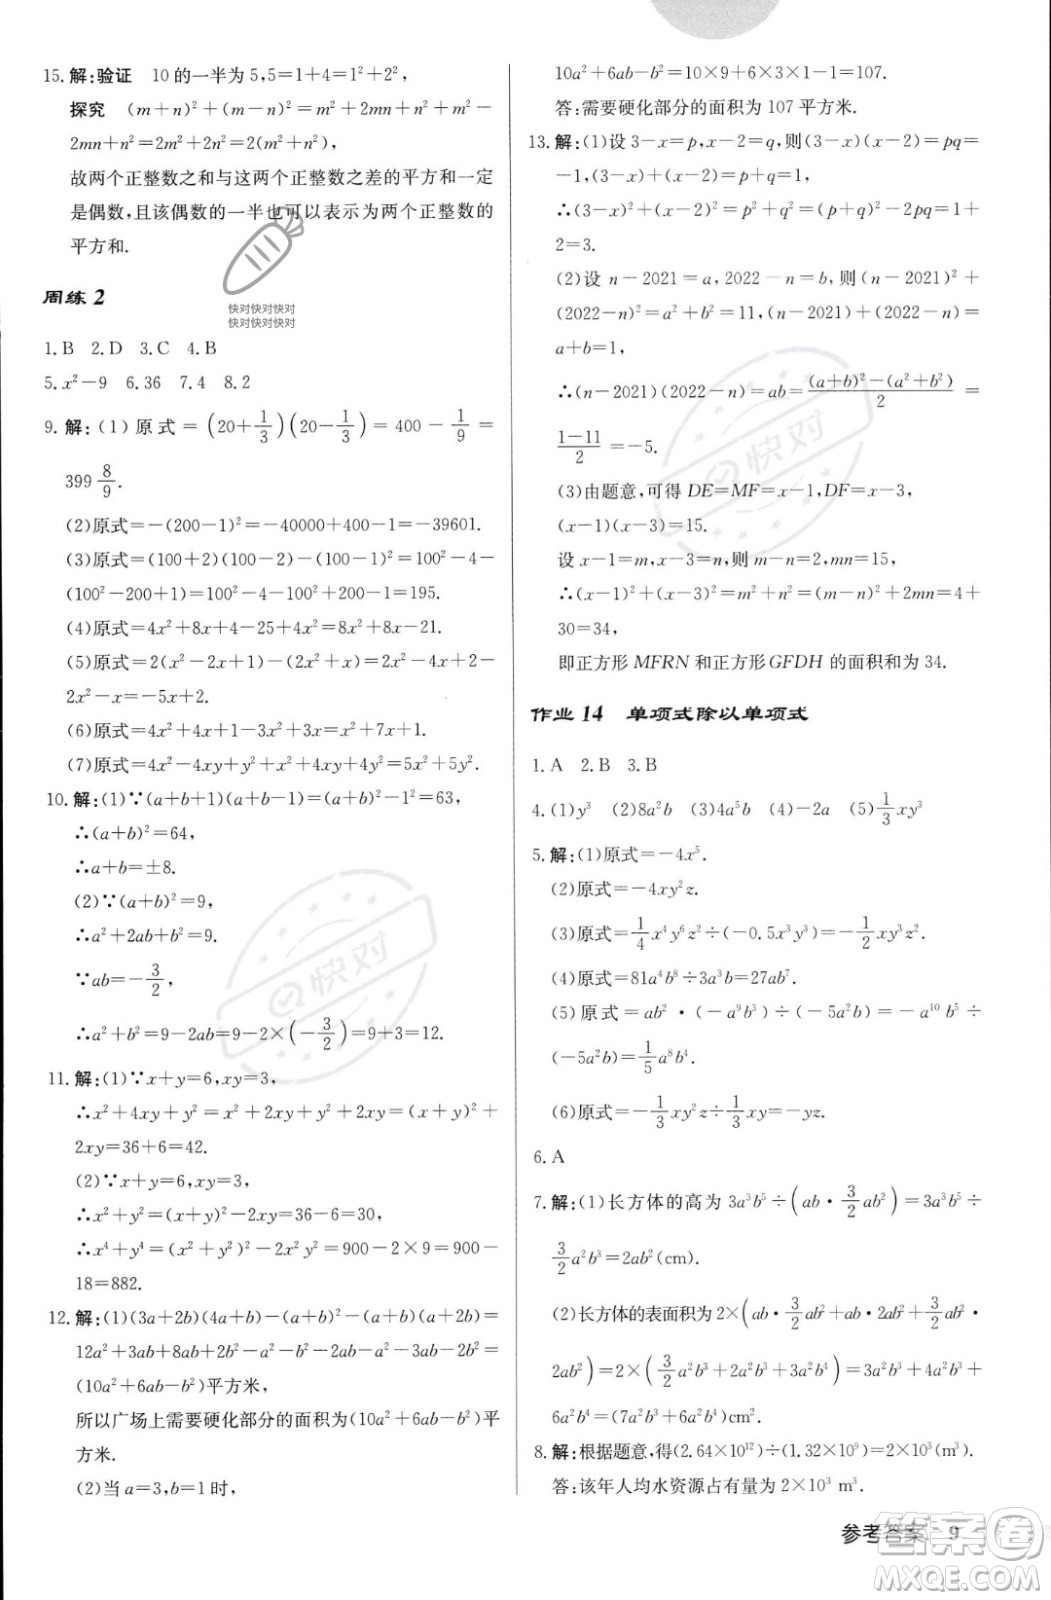 15.解:验证　10的一半为5,5=1+4=1²+2²,
探究　(m+n)²+(m-n)²=m²+2mn+n²+m²-
2mn+n²=2m²+2n²=2(m²+n²),
故两个正整数之和与这两个正整数之差的平方和一定
是偶数,且该偶数的一半也可以表示为两个正整数的
平方和.
快对快对快对
快对快对快对
周练2
1.B　2.D　3.C　4.B
5.x²-9　6.36　7.4　8.2
9.解:(1)原式=(20+1/3)(20-1/3)=400-1/9=
399 8/9.
(2)原式=-(200-1)²=-40000+400-1=-39601.
(3)原式=(100+2)(100-2)-(100-1)²=100²-4-
(100²-200+1)=100²-4-100²+200-1=195.
(4)原式=4x²+8x+4-25+4x²=8x²+8x-21.
(5)原式=2(x²-2x+1)-(2x²+x)=4x²-4x+2-
2x²-x=2x²-5x+2.
(6)原式=4x²+4x+1-4x²-1+3x=7x.
(7)原式=4x²-4xy+y²+x²+4xy+4y²=5x²+5y².
10.解:(1)∵(a+b+1)(a+b-1)=(a+b)²-1²=63,
∴(a+b)²=64,
∴a+b=±8.
(2)∵(a+b)²=9,
∴a²+2ab+b²=9.
∵ab=-3/2,
∴a²+b²=9-2ab=9-2×(-3/2)=9+3=12.
11.解:(1)∵x+y=6,xy=3,
∴x²+4xy+y²=x²+2xy+y²+2xy=(x+y)²+
2xy=36+6=42.
(2)∵x+y=6,xy=3,
∴x²+y²=(x+y)²-2xy=36-6=30,
∴x⁴+y⁴=(x²+y²)²-2x²y²=900-2×9=900-
18=882.
12.解:(1)(3a+2b)(4a+b)-(a+b)²-(a+b)(a+2b)=
12a²+3ab+8ab+2b²-a²-2ab-b²-a²-3ab-2b²=
(10a²+6ab-b²)平方米,
所以广场上需要硬化部分的面积为(10a²+6ab-b²)平
方米.
(2)当a=3,b=1时,
10a²+6ab-b²=10×9+6×3×1-1=107.
答:需要硬化部分的面积为107平方米.
13.解:(1)设3-x=p,x-2=q,则(3-x)(x-2)=pq=
-1,(3-x)+(x-2)=p+q=1,
∴(3-x)²+(x-2)²=p²+q²=(p+q)²-2pq=1+
2=3.
(2)设n-2021=a,2022-n=b,则(n-2021)²+
(2022-n)²=a²+b²=11,(n-2021)+(2022-n)=
a+b=1,
∴(n-2021)(2022-n)=ab=((a+b)²-(a²+b²))/2=
(1-11)/2=-5.
(3)由题意,可得DE=MF=x-1,DF=x-3,
(x-1)(x-3)=15.
设x-1=m,x-3=n,则m-n=2,mn=15,
∴(x-1)²+(x-3)²=m²+n²=(m-n)²+2mn=4+
30=34,
即正方形MFRN和正方形GFDH的面积和为34.
作业14　单项式除以单项式
1.A　2.B　3.B
4.(1)y³　(2)8a²b　(3)4a⁵b　(4)-2a　(5)1/3xy³
5.解:(1)原式=-4x⁵.
(2)原式=-4xy²z.
(3)原式=1/4x⁴y⁶z²÷(-0.5x³y³)=-1/2xy³z².
(4)原式=81a⁴b⁸÷3a³b=27ab⁷.
(5)原式=ab²·(-a⁹b³)÷(-5a²b)=-a¹⁰b⁵÷
(-5a²b)=1/5a⁸b⁴.
(6)原式=-1/3xy²z÷1/3xy=-yz.
6.A
7.解:(1)长方体的高为3a³b⁵÷(ab·3/2ab²)=3a³b⁵÷
3/2a²b³=2ab²(cm).
(2)长方体的表面积为2×(ab·3/2ab²+ab·2ab²+3/2ab²·
2ab²)=2×(3/2a²b³+2a²b³+3a²b⁴)=3a²b³+4a²b³+
6a²b⁴=(7a²b³+6a²b⁴)cm².
8.解:根据题意,得(2.64×10¹²)÷(1.32×10⁹)=2×10³(m³).
答:该年人均水资源占有量为2×10³ m³.
参考答案　9
快对
快对
答案圈
MXQE.COM